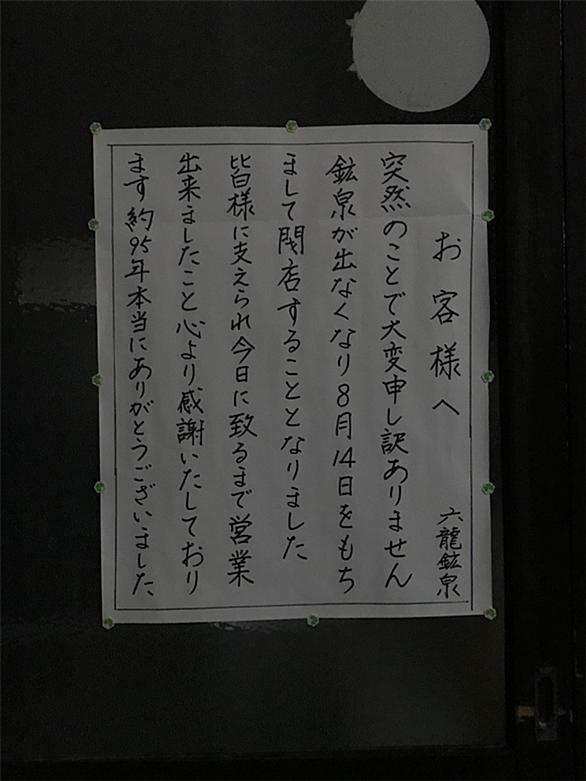 お客様へ
六龍鉱泉
突然のことで大変申し訳ありません
鉱泉が出なくなり8月14日をもち
まして閉店することとなりました
皆様に支えられ今日に致るまで営業
出来ましたこと心より感謝いたしており
ます約95年本当にありがとうございました